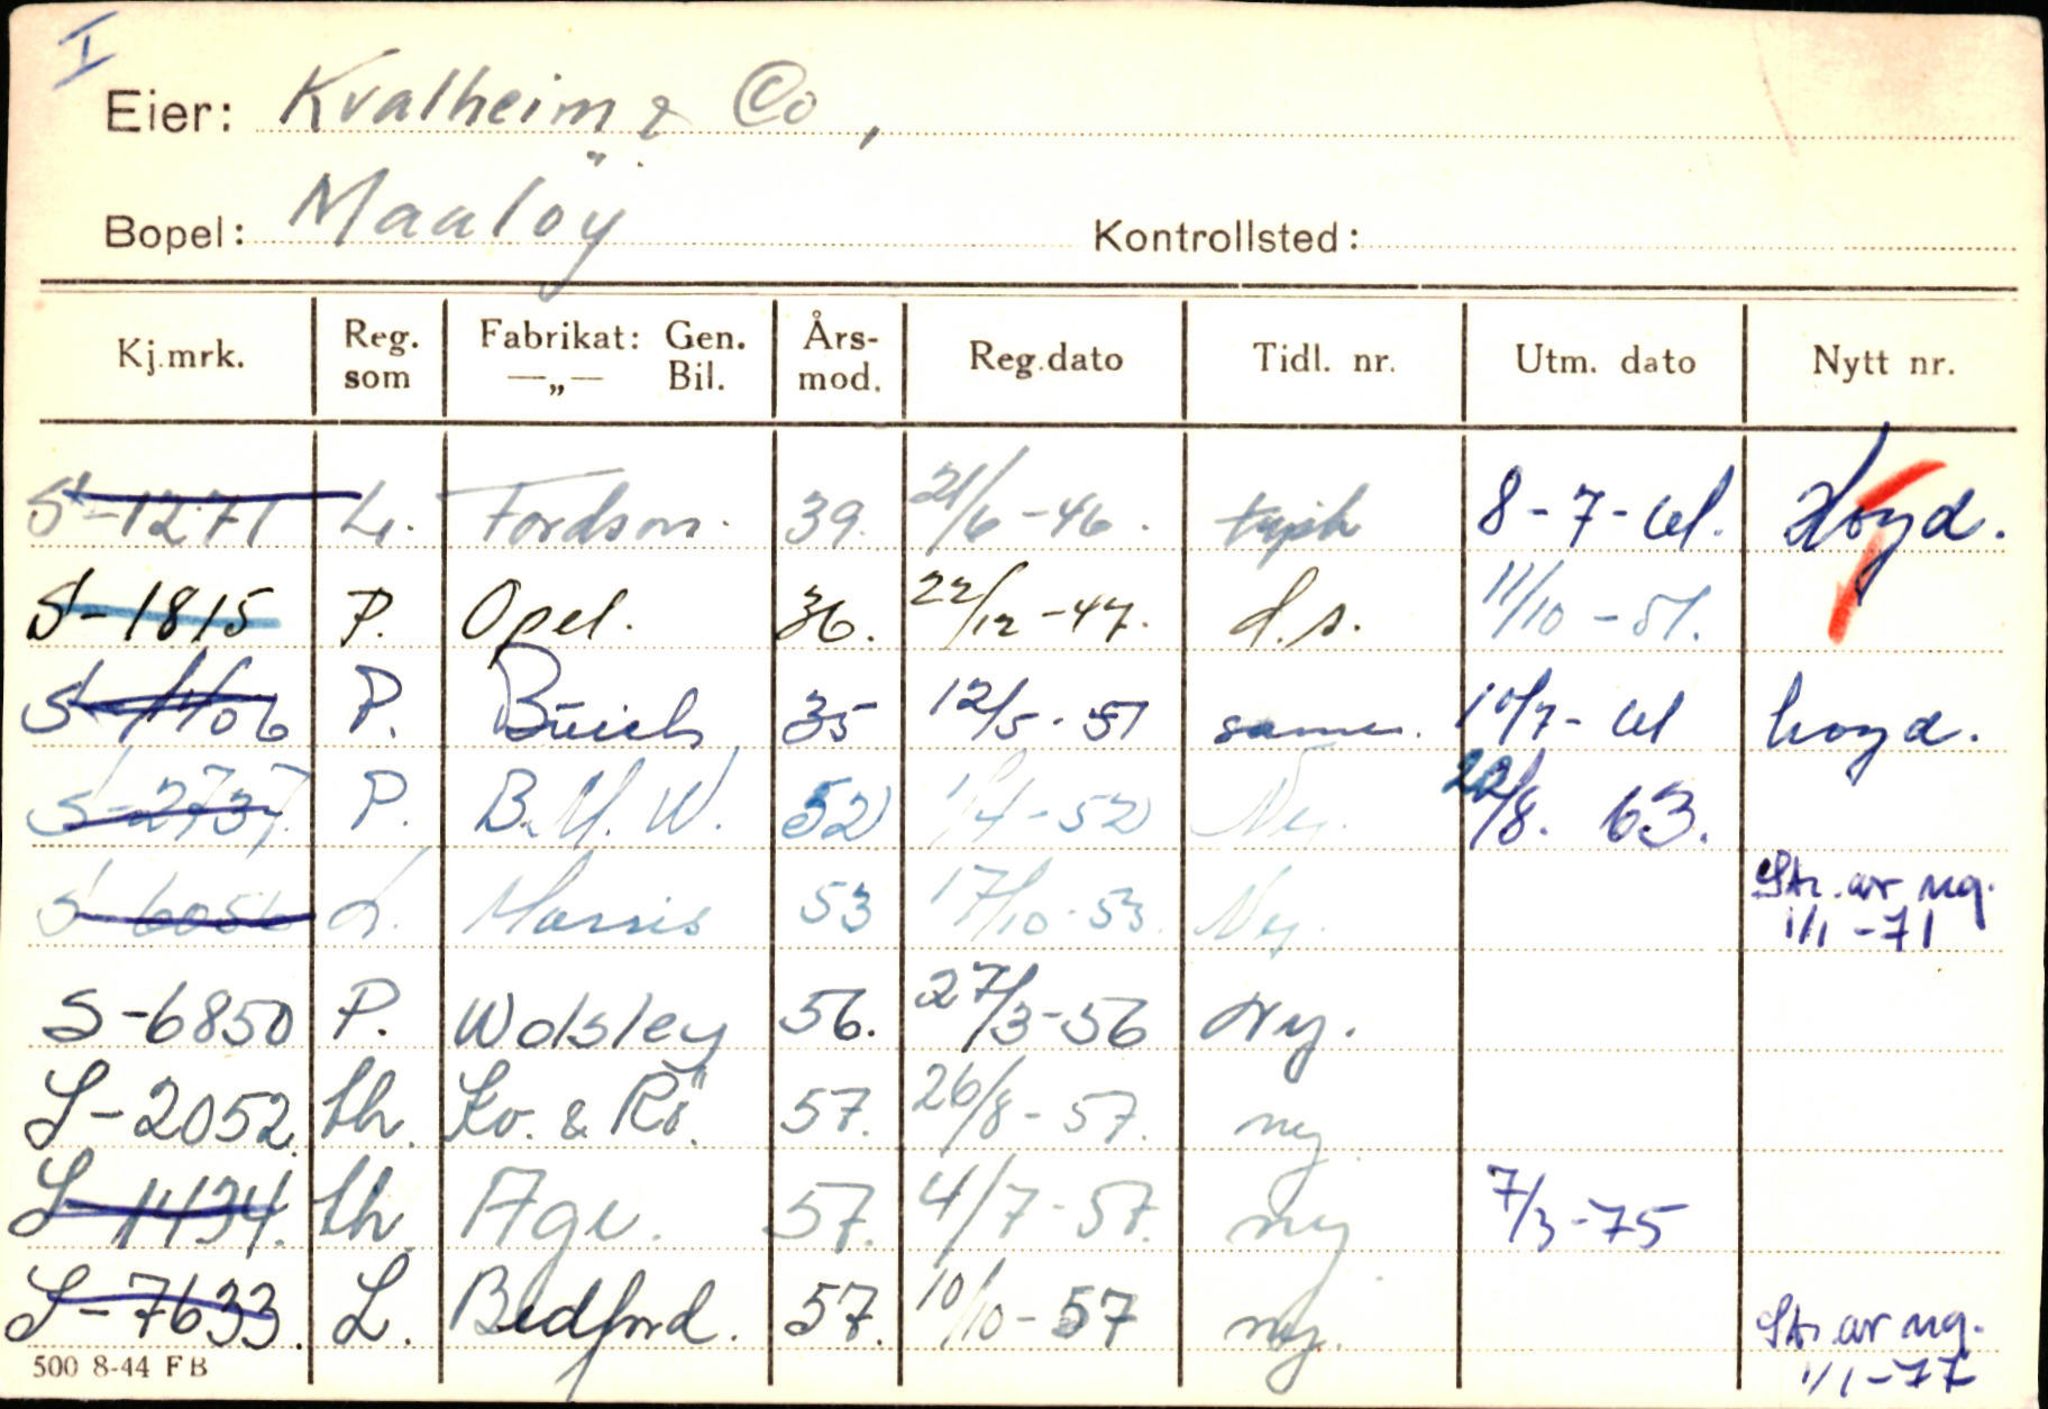 I
Eier: Kvalheim & Co,
Bopel: Maaløy Kontrollsted:
Kj.mrk. Reg. som Fabrikat: Gen. —„— Bil. Års-mod. Reg.dato Tidl. nr. Utm. dato Nytt nr.
S-1271 L. Fordson. 39. 21/6-46. 8-7-61.
S-1815 P. Opel. 36. 22/12-47. d.s. 11/10-51.
S-1406 P. Buick 35 12/5-51 samme. 10/7-61
S-2737. P. B.M.W. 52 1/4-52 Ny. 22/8. 63.
S-6056 L. Morris 53 17/10-53. Ny. Str. av reg. 1/1-71
S-6850 P. Wolsley 56. 27/3-56 Ny.
S-2052. th. Ko. & Rö. 57. 26/8-57. ny.
S-1434. th. 57. 4/7-57. ny 7/3-75
S-7633. L. Bedford. 57. 10/10-57 ny. Str. av reg. 1/1-77
500 8-44 FB